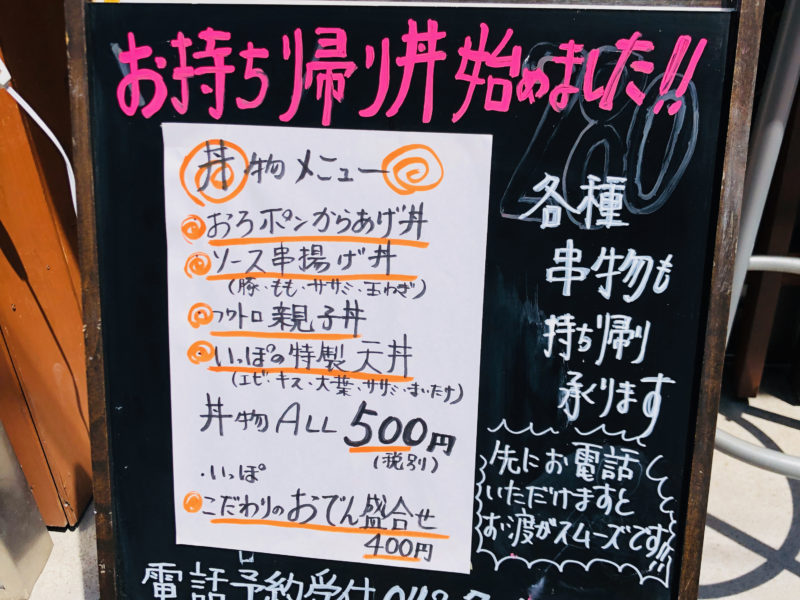 お持ち帰り丼始めました!!
丼物メニュー
おろポンからあげ丼
ソース串揚げ丼
(豚・もも・ササミ・玉ねぎ)
フワトロ親子丼
いっぽの特製天丼
(エビ・キス・大葉・ササミ・まいたけ)
丼物ALL 500円
(税別)
・いっぽ
こだわりのおでん盛合せ
400円
各種
串物も
持ち帰り
承ります
先にお電話
いただけますと
お渡がスムーズです!!
電話予約受付